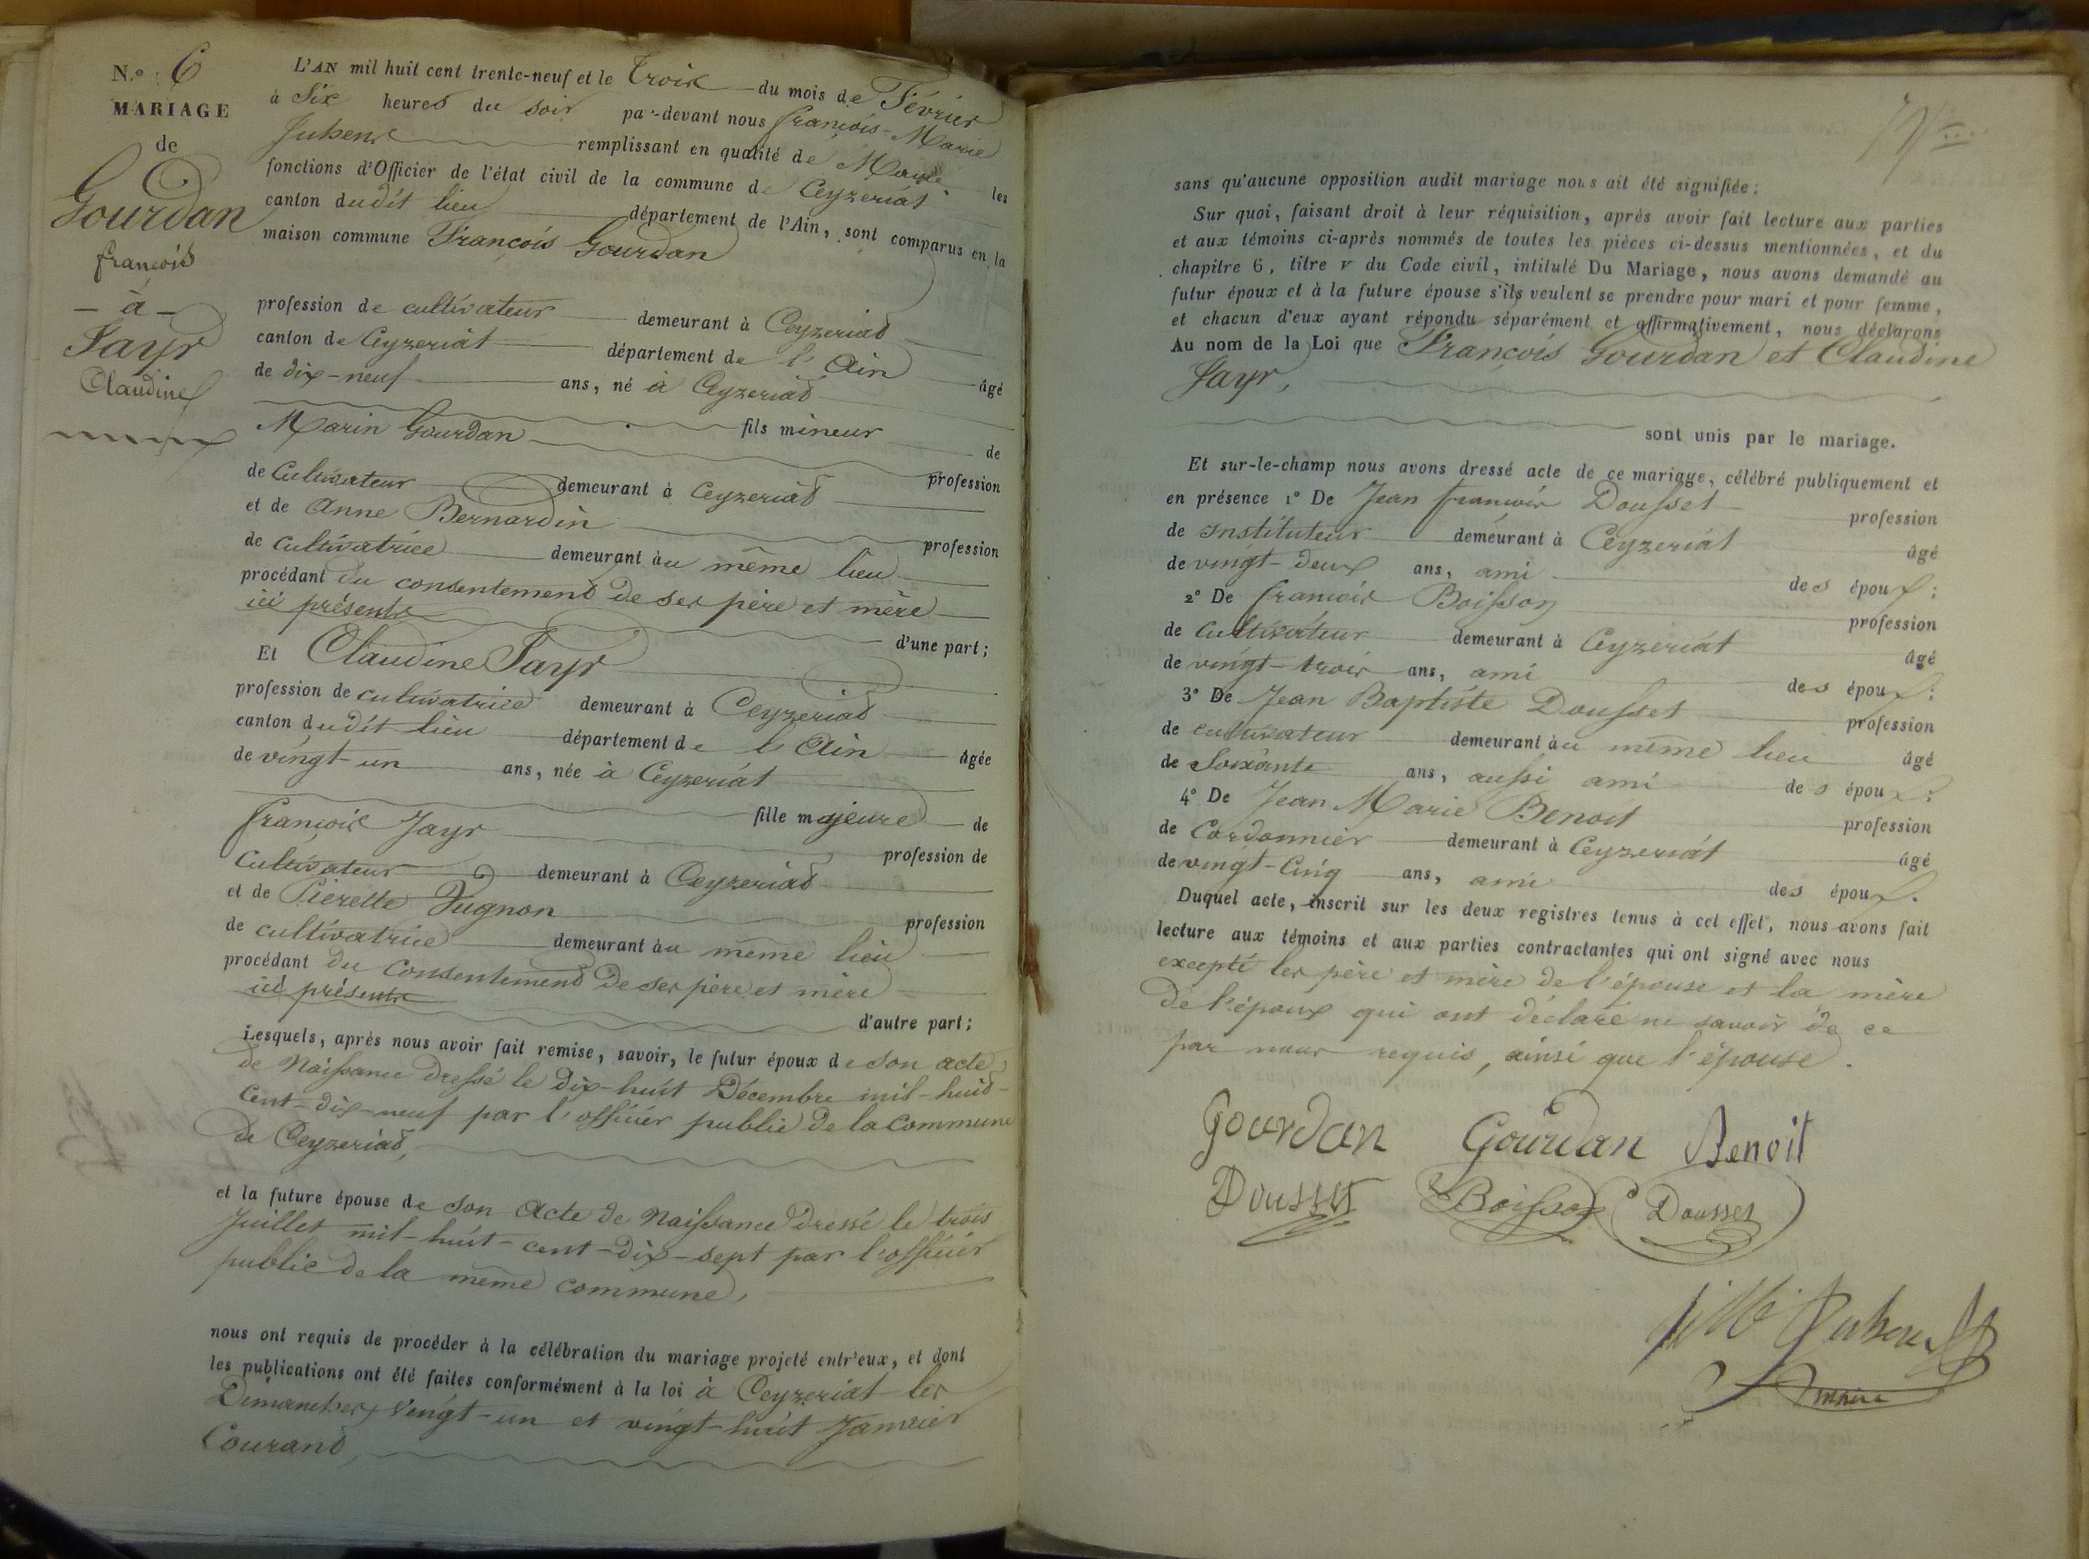 N.º 6
MARIAGE
de
Gourdan
françois
- à -
Jayr
Claudine
L'AN mil huit cent trente-neuf et le trois du mois de Février
à Six heures du soir par-devant nous françois-Marie
remplissant en qualité de Maire les
fonctions d'Officier de l'état civil de la commune de Ceyzeriat
canton dudit lieu département de l'Ain, sont comparus en la
maison commune François Gourdan
profession de cultivateur demeurant à Ceyzeriat
canton de Ceyzeriat département de l'Ain âgé
de dix-neuf ans, né à Ceyzeriat
fils mineur de
Marin Gourdan profession
de Cultivateur demeurant à Ceyzeriat
et de Anne Bernardin profession
de cultivatrice demeurant au même lieu
procédant du consentement de ses père et mère
ici présents d'une part;
Et Claudine Jayr
profession de cultivatrice demeurant à Ceyzeriat
canton dudit lieu département de l'Ain âgée
de vingt-un ans, née à Ceyzeriat
fille majeure de
françois Jayr profession de
Cultivateur demeurant à Ceyzeriat
et de Pierette Vugnon profession
de cultivatrice demeurant au même lieu
procédant du consentement de ses père et mère
ici présents d'autre part;
Lesquels, après nous avoir fait remise, savoir, le futur époux de son acte
de Naissance dressé le dix-huit Décembre mil-huit-
cent-dix-neuf par l'officier public de la Commune
de Ceyzeriat,
et la future épouse de son acte de Naissance dressé le trois
Juillet mil-huit-cent-dix-sept par l'officier
public de la même commune,
nous ont requis de procéder à la célébration du mariage projeté entr'eux, et dont
les publications ont été faites conformément à la loi à Ceyzeriat les
Dimanches vingt-un et vingt-huit Janvier
Courant,
sans qu'aucune opposition audit mariage nous ait été signifiée;
Sur quoi, faisant droit à leur réquisition, après avoir fait lecture aux parties
et aux témoins ci-après nommés de toutes les pièces ci-dessus mentionnées, et du
chapitre 6, titre v du Code civil, intitulé Du Mariage, nous avons demandé au
futur époux et à la future épouse s'ils veulent se prendre pour mari et pour femme,
et chacun d'eux ayant répondu séparément et affirmativement, nous déclarons
Au nom de la Loi que François Gourdan et Claudine
Jayr,
sont unis par le mariage.
Et sur-le-champ nous avons dressé acte de ce mariage, célébré publiquement et
en présence 1º De Jean françois Dousset profession
de instituteur demeurant à Ceyzeriat âgé
de vingt-deux ans, ami des époux;
2º De françois Boisson profession
de Cultivateur demeurant à Ceyzeriat âgé
de vingt-trois ans, ami des époux;
3º De Jean Baptiste Dousset profession
de cultivateur demeurant au même lieu âgé
de Soixante ans, aussi ami des époux;
4º De Jean Marie Benoit profession
de Cordonnier demeurant à Ceyzeriat âgé
de vingt-cinq ans, ami des époux.
Duquel acte, inscrit sur les deux registres tenus à cet effet, nous avons fait
lecture aux témoins et aux parties contractantes qui ont signé avec nous
excepté les père et mère de l'épouse et la mère
de l'époux qui ont déclaré ne savoir de ce
par nous requis, ainsi que l'épouse.
Gourdan Gourdan Benoit
Dousset Boisson Dousset
maire